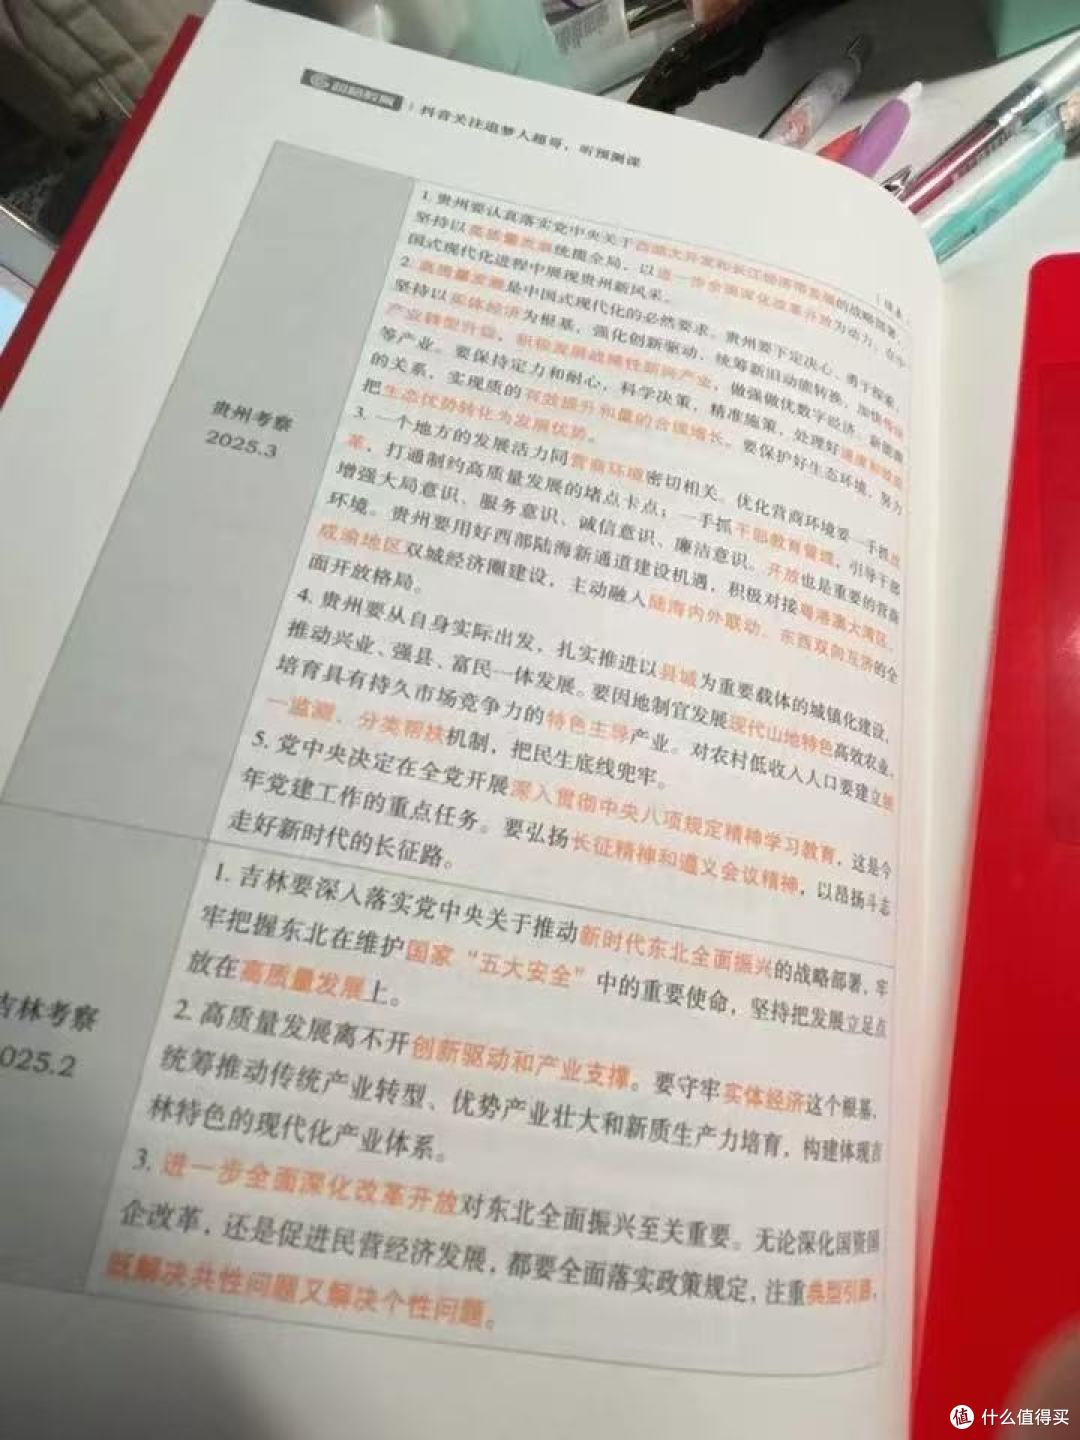 超格教育
抖音关注追梦人超哥，听预测课
续表
贵州考察
2025.3
1. 贵州要认真落实党中央关于西部大开发和长江经济带发展的战略部署，
坚持以高质量发展统揽全局，以进一步全面深化改革开放为动力，在中
国式现代化进程中展现贵州新风采。
2. 高质量发展是中国式现代化的必然要求。贵州要下定决心、勇于探索，
坚持以实体经济为根基，强化创新驱动，统筹新旧动能转换，加快传统
产业转型升级，积极发展战略性新兴产业，做强做优数字经济、新能源
等产业。要保持定力和耐心，科学决策，精准施策，处理好速度和效益
的关系，实现质的有效提升和量的合理增长。要保护好生态环境，努力
把生态优势转化为发展优势。
3. 一个地方的发展活力同营商环境密切相关。优化营商环境要一手抓改
革，打通制约高质量发展的堵点卡点；一手抓干部教育管理，引导干部
增强大局意识、服务意识、诚信意识、廉洁意识。开放也是重要的营商
环境。贵州要用好西部陆海新通道建设机遇，积极对接粤港澳大湾区、
成渝地区双城经济圈建设，主动融入陆海内外联动、东西双向互济的全
面开放格局。
4. 贵州要从自身实际出发，扎实推进以县城为重要载体的城镇化建设，
推动兴业、强县、富民一体发展。要因地制宜发展现代山地特色高效农业，
培育具有持久市场竞争力的特色主导产业。对农村低收入人口要建立统
一监测、分类帮扶机制，把民生底线兜牢。
5. 党中央决定在全党开展深入贯彻中央八项规定精神学习教育，这是今
年党建工作的重点任务。要弘扬长征精神和遵义会议精神，以昂扬斗志
走好新时代的长征路。
吉林考察
025.2
1. 吉林要深入落实党中央关于推动新时代东北全面振兴的战略部署，牢
牢把握东北在维护国家“五大安全”中的重要使命，坚持把发展立足点
放在高质量发展上。
2. 高质量发展离不开创新驱动和产业支撑。要守牢实体经济这个根基，
统筹推动传统产业转型、优势产业壮大和新质生产力培育，构建体现吉
林特色的现代化产业体系。
3. 进一步全面深化改革开放对东北全面振兴至关重要。无论深化国资国
企改革，还是促进民营经济发展，都要全面落实政策规定，注重典型引路，
既解决共性问题又解决个性问题。
值 什么值得买